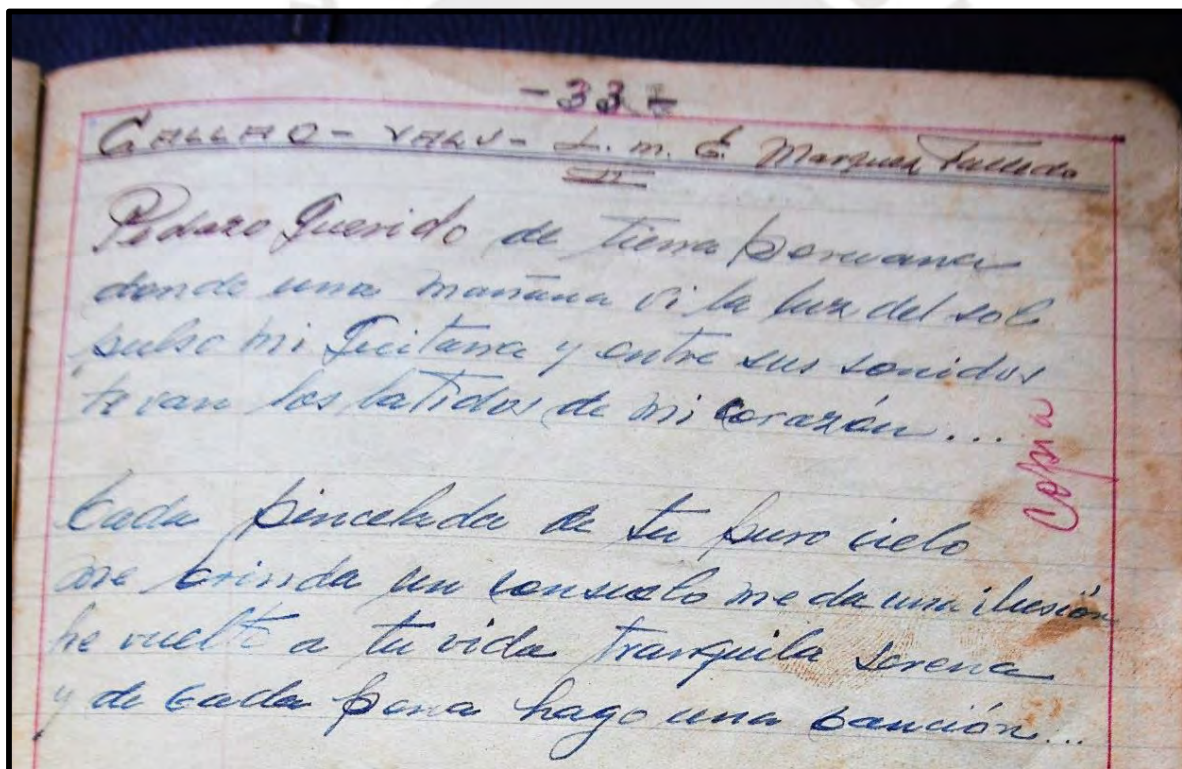 -33-
CALLAO - VALS - L. m. E. Marquez Talledo
Pedazo Querido de tierra peruana
donde una mañana vi la luz del sol
pulso mi Guitarra y entre sus sonidos
te van los latidos de mi corazón...
Copia
Cada pincelada de tu puro cielo
me brinda un consuelo me da una ilusión
he vuelto a tu vida tranquila serena
y de cada pena hago una canción...